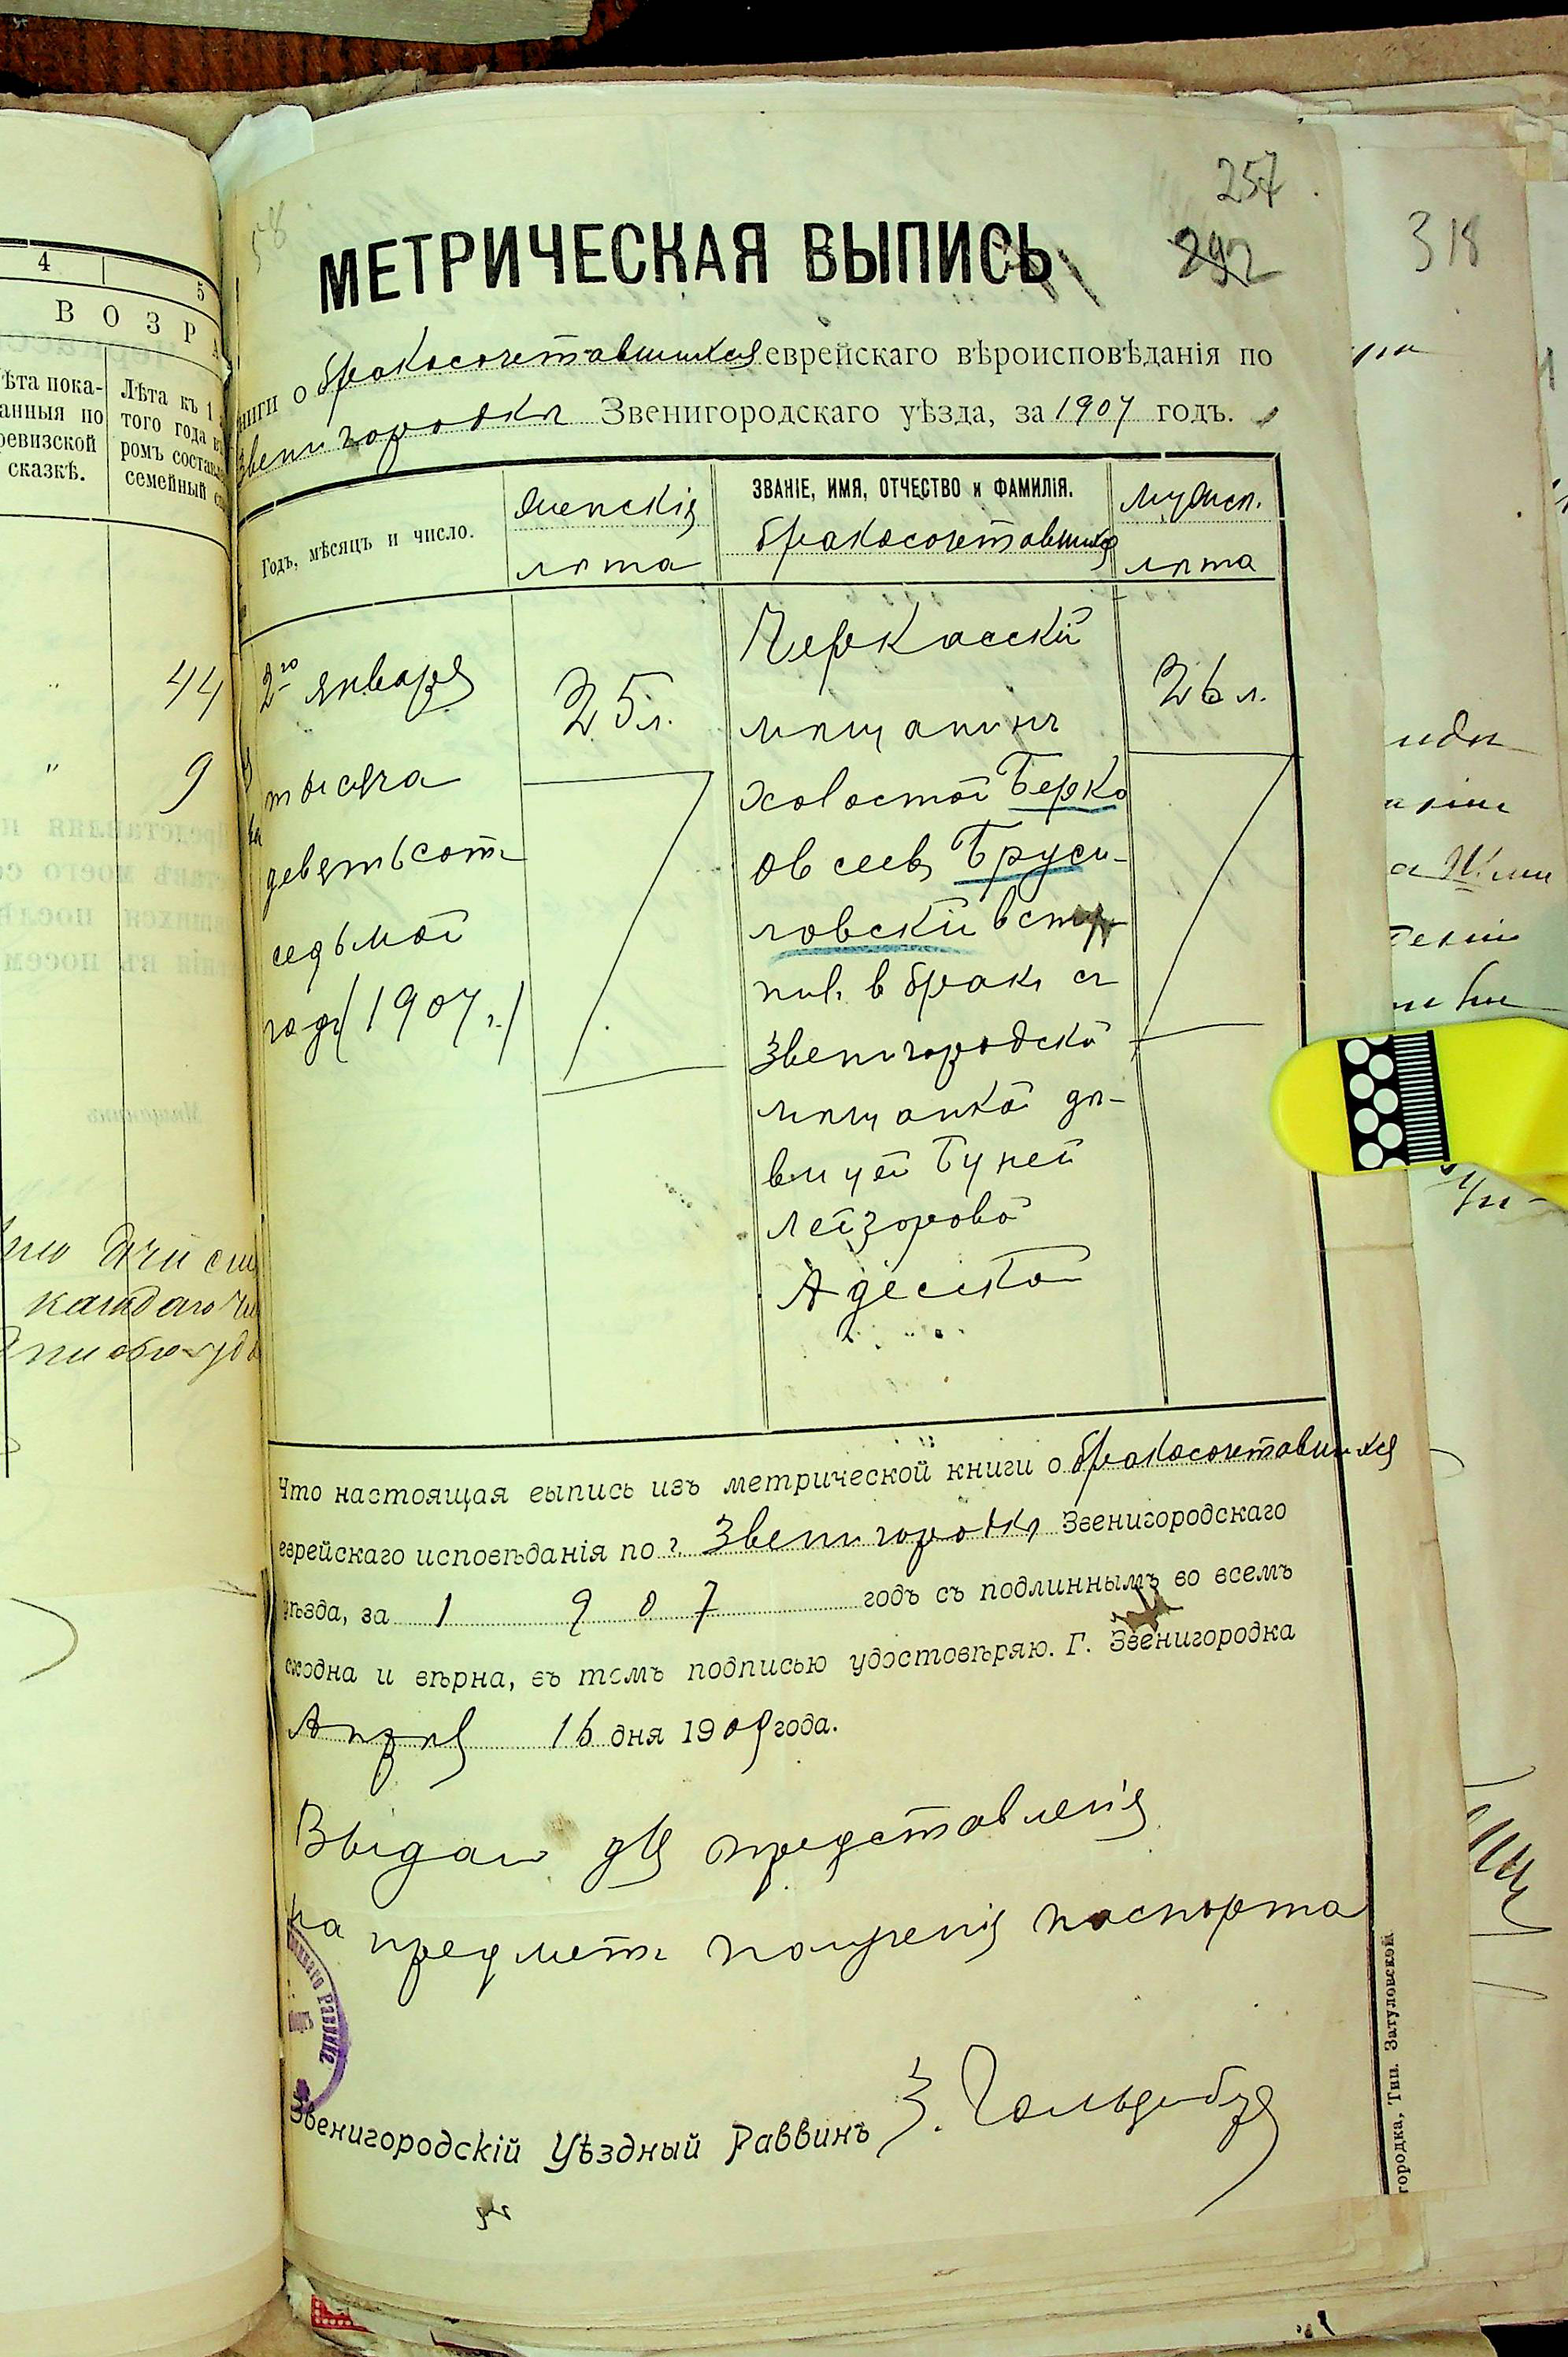 4 5
ВОЗРА
ѣта пока- Лѣта къ 1
анныя по того года в
ревизской ромъ состав
сказкѣ. семейный с
44
" 9
257
292
318
58
МЕТРИЧЕСКАЯ ВЫПИСЬ
ниги о бракосочетавшихся еврейскаго вѣроисповѣданія по
Звенигородкѣ Звенигородскаго уѣзда, за 1907 годъ.
Годъ, мѣсяцъ и число.
Женскія
лѣта
ЗВАНІЕ, ИМЯ, ОТЧЕСТВО и ФАМИЛІЯ.
бракосочетавшихся
Мужск.
лѣта
2го января
тысяча
девятьсотъ
седьмой
годъ (1907 г.)
25 л.
Черкасскій
мѣщанинъ
холостой Берко
Овсеевъ Бруси-
ловскій всту
пив. в бракъ съ
Звенигородской
мѣщанкой дѣ-
вицей Буней
Лейзоровой
Адесской
26 л.
Что настоящая выпись изъ метрической книги о бракосочетавшихся
еврейскаго исповѣданія по г. Звенигородкѣ Звенигородскаго
уѣзда, за 1907 годъ съ подлиннымъ во всемъ
сходна и вѣрна, въ томъ подписью удостовѣряю. Г. Звенигородка
Апрѣля 16 дня 1909 года.
Выдана для представленія
на предметъ полученія паспорта
Звенигородскій Уѣздный Раввинъ З.
городка, Тип. Затуловской